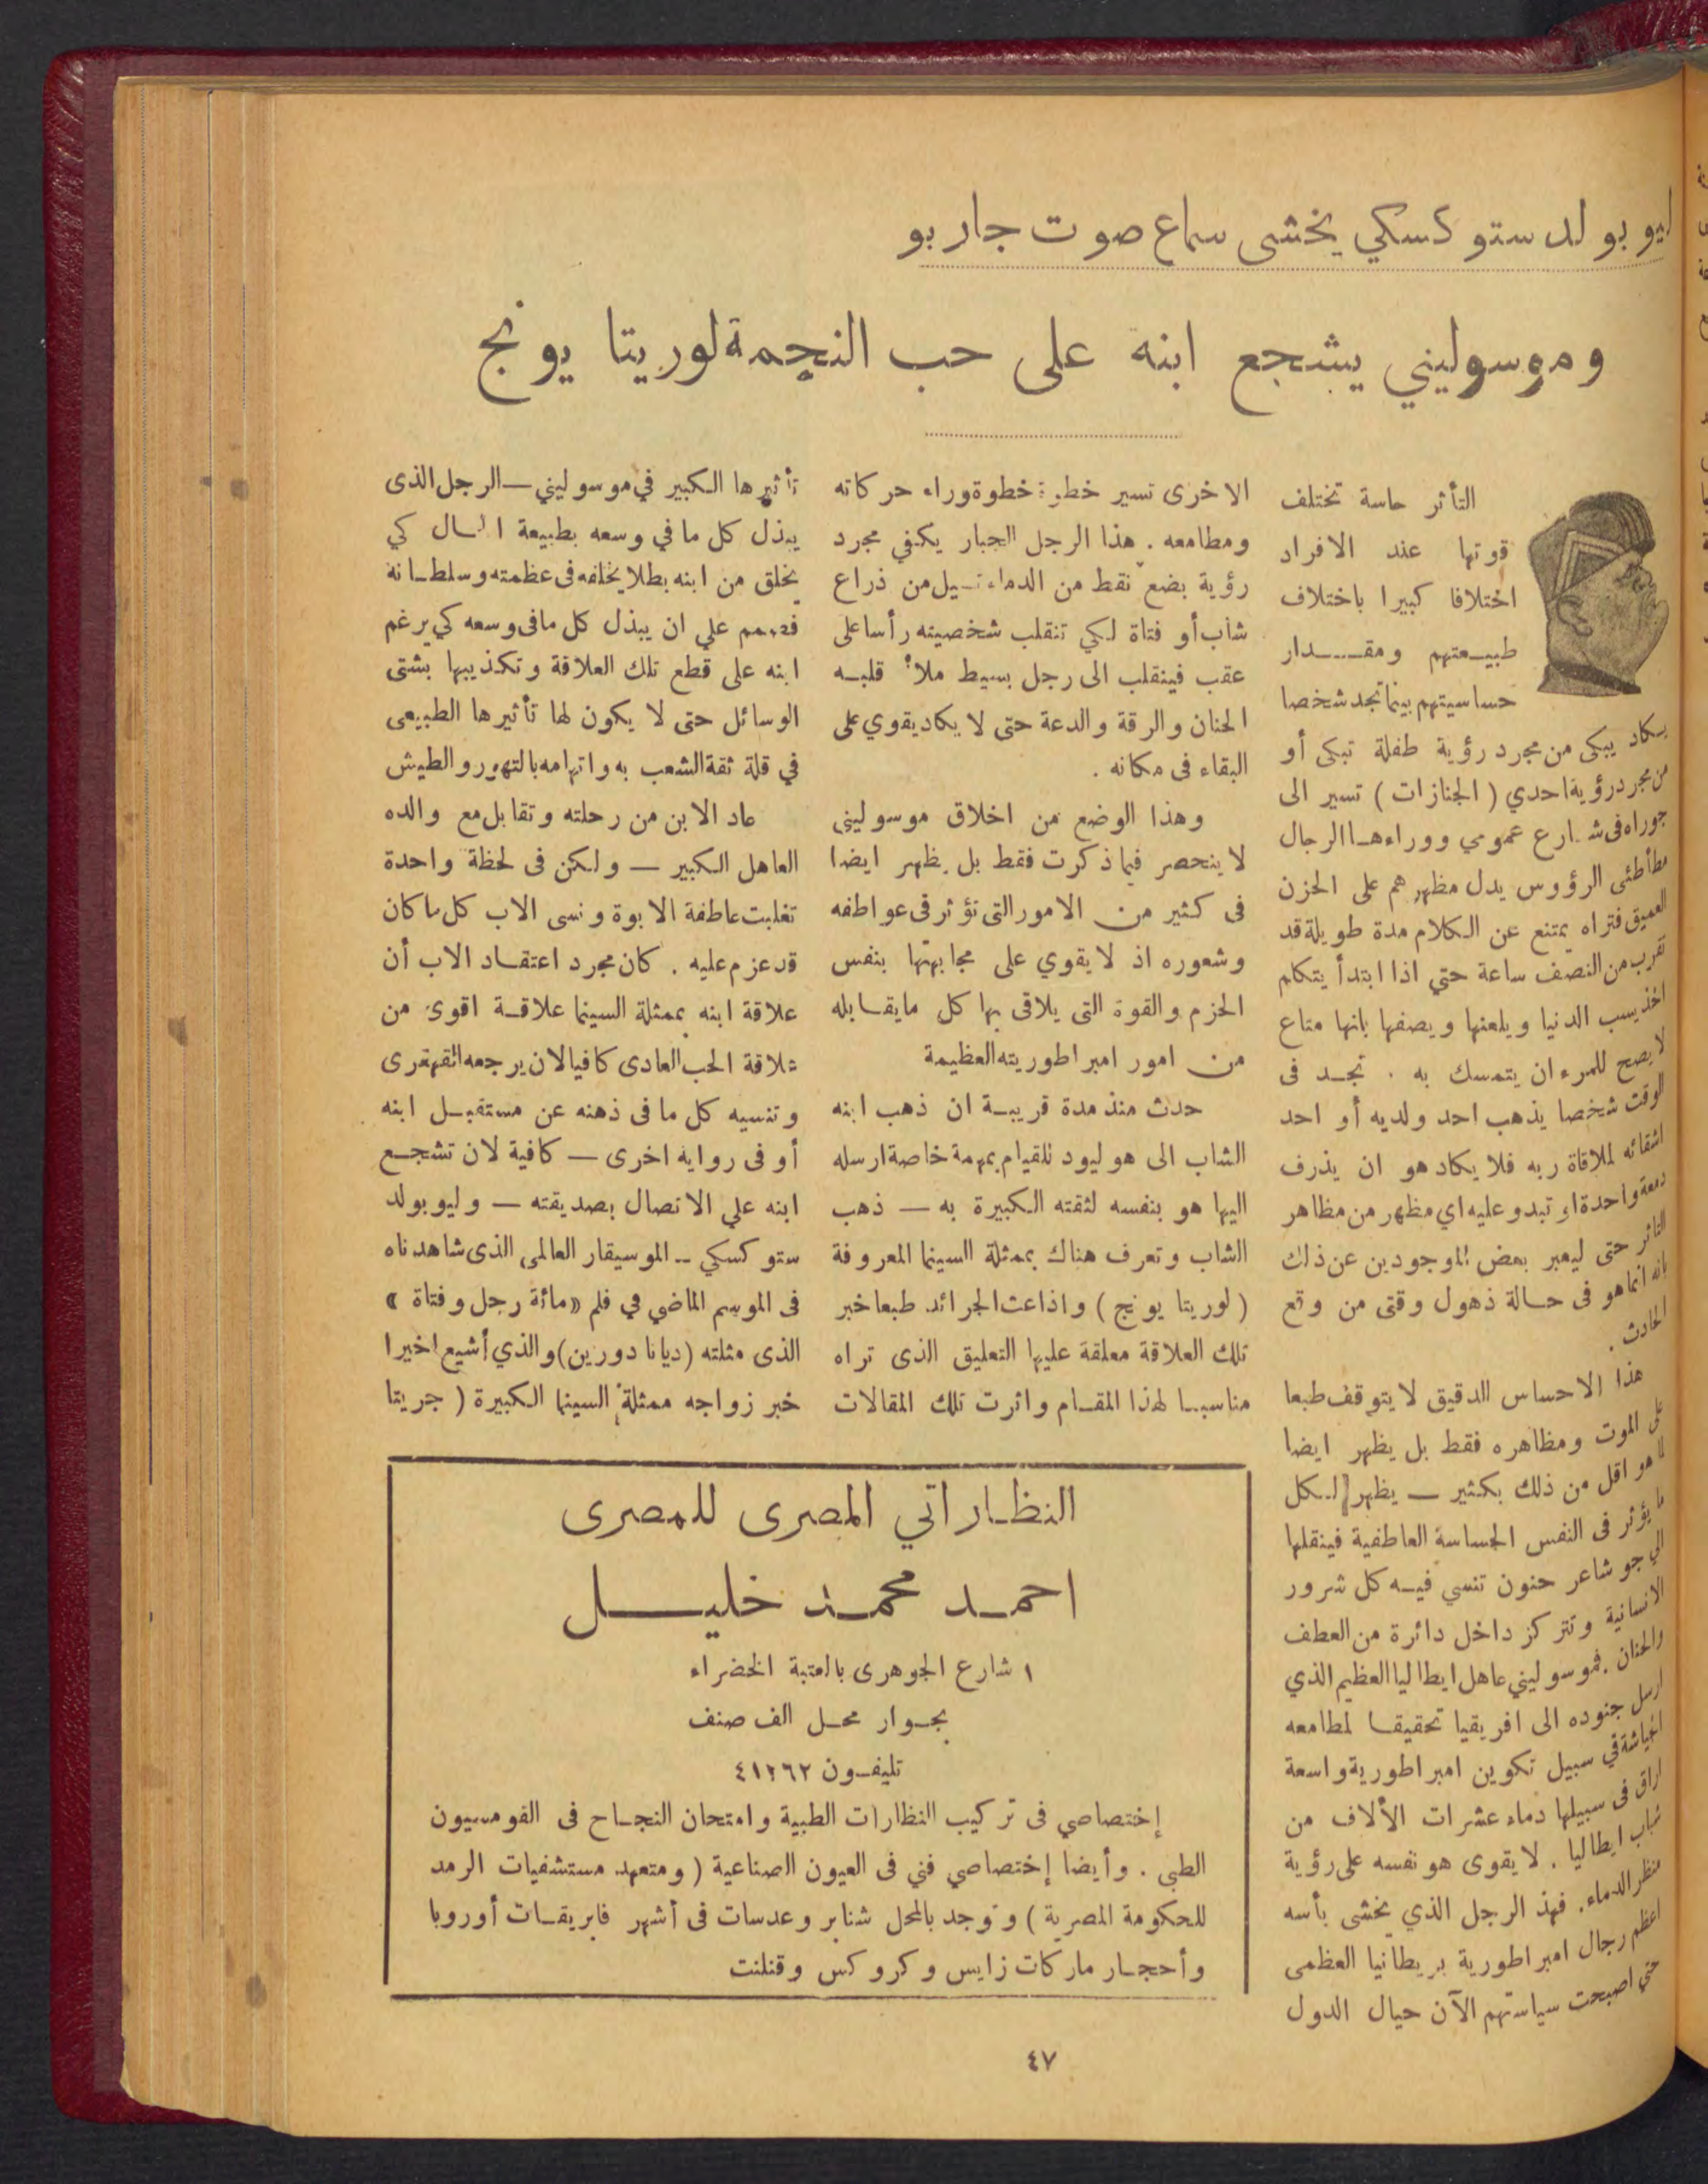 ليوبولد ستوكسكي يخشى سماع صوت جاربو
وموسوليني يشجع ابنه على حب النجمة لوريتا يونج
التأثر حاسة تختلف
قوتها عند الافراد
اختلافا كبيرا باختلاف
طبيعتهم ومقدار
حساسيتهم بينما تجد شخصا
يكاد يبكى من مجرد رؤية طفلة تبكى أو
من مجرد رؤية احدي ( الجنازات ) تسير الى
جوراه فى شارع عمومي ووراءها الرجال
مطأطئى الرؤوس يدل مظهرهم على الحزن
العميق فتراه يمتنع عن الكلام مدة طويلة قد
تقرب من النصف ساعة حتي اذا ابتدأ يتكلم
اخذ يسب الدنيا ويلعنها ويصفها بانها متاع
لا يصح للمرء ان يتمسك به . تجد فى
الوقت شخصا يذهب احد ولديه أو احد
اشقائه لملاقاة ربه فلا يكاد هو ان يذرف
دمعة واحدة او تبدو عليه اي مظهر من مظاهر
التاثر حتى ليعبر بعض الموجودين عن ذلك
بانه انما هو فى حالة ذهول وقتى من وقع
الحادث .
هذا الاحساس الدقيق لا يتوقف طبعا
على الموت ومظاهره فقط بل يظهر ايضا
لما هو اقل من ذلك بكثير — يظهر لكل
ما يؤثر فى النفس الحساسة العاطفية فينقلها
الي جو شاعر حنون تنسي فيه كل شرور
الانسانية وتتركز داخل دائرة من العطف
والحنان . فموسوليني عاهل ايطاليا العظيم الذي
ارسل جنوده الى افريقيا تحقيقا لمطامعه
الجياشة في سبيل تكوين امبراطورية واسعة
اراق فى سبيلها دماء عشرات الألاف من
شباب ايطاليا . لا يقوى هو نفسه على رؤية
منظر الدماء . فهذ الرجل الذي يخشى بأسه
اعظم رجال امبراطورية بريطانيا العظمى
حتي اصبحت سياستهم الآن حيال الدول
الاخرى تسير خطوة خطوة وراء حركاته
ومطامعه . هذا الرجل الجبار يكفي مجرد
رؤية بضع نقط من الدماء تسيل من ذراع
شاب أو فتاة لكي تنقلب شخصيته رأسا على
عقب فينقلب الى رجل بسيط ملأ قلبه
الحنان والرقة والدعة حتى لا يكاد يقوي على
البقاء فى مكانه .
وهذا الوضع من اخلاق موسوليني
لا ينحصر فيما ذكرت فقط بل يظهر ايضا
فى كثير من الامور التى تؤثر فى عواطفه
وشعوره اذ لا يقوي على مجابهتها بنفس
الحزم والقوة التى يلاقى بها كل ما يقابله
من امور امبراطوريته العظيمة
حدث منذ مدة قريبة ان ذهب ابنه
الشاب الى هوليود للقيام بمهمة خاصة ارسله
اليها هو بنفسه لثقته الكبيرة به — ذهب
الشاب وتعرف هناك بممثلة السينما المعروفة
( لوريتا يونج ) واذاعت الجرائد طبعا خبر
تلك العلاقة معلقة عليها التعليق الذى تراه
مناسبا لهذا المقام واثرت تلك المقالات
تأثيرها الكبير في موسوليني — الرجل الذى
يبذل كل ما في وسعه بطبيعة الحال كي
يخلق من ابنه بطلا يخلفه فى عظمته وسلطانه
فصمم علي ان يبذل كل مافى وسعه كي يرغم
ابنه على قطع تلك العلاقة وتكذيبها بشتى
الوسائل حتى لا يكون لها تأثيرها الطبيعى
في قلة ثقة الشعب به واتهامه بالتهور والطيش
عاد الابن من رحلته وتقابل مع والده
العاهل الكبير — ولكن فى لحظة واحدة
تغلبت عاطفة الابوة ونسى الاب كل ما كان
قد عزم عليه . كان مجرد اعتقاد الاب أن
علاقة ابنه بممثلة السينما علاقة اقوى من
علاقة الحب العادى كافيا لان يرجعه القهقرى
وتنسيه كل ما فى ذهنه عن مستقبل ابنه
أو فى رواية اخرى — كافية لان تشجع
ابنه علي الاتصال بصديقته — وليوبولد
ستوكسكي — الموسيقار العالمى الذى شاهدناه
فى الموسم الماضي في فلم « مائة رجل وفتاة »
الذى مثلته ( ديانا دوربن ) والذي أشيع اخيرا
خبر زواجه ممثلة السينما الكبيرة ( جريتا
النظاراتي المصرى للمصرى
احمد محمد خليل
١ شارع الجوهرى بالعتبة الخضراء
بجوار محل الف صنف
تليفون ٤١٢٦٢
إختصاصي فى تركيب النظارات الطبية وامتحان النجاح فى القومسيون
الطبى . وأيضا إختصاصي فني فى العيون الصناعية ( ومتعهد مستشفيات الرمد
للحكومة المصرية ) وتوجد بالمحل شنابر وعدسات فى أشهر فابريقات أوروبا
وأحجار ماركات زايس وكروكس وقنلنت
٤٧